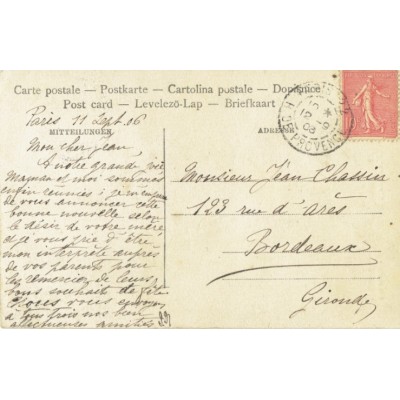 Carte postale – Postkarte – Cartolina postale – Dopisnice
Post card – Levelező-Lap – Briefkaart
Paris 11 Sept. 06
MITTEILUNGEN.
ADRESSE
Mon cher Jean
A notre grande joie
Maman et moi sommes
enfin réunies & je m'empresse
de vous annoncer cette
bonne nouvelle selon
le désir de votre mère
et je vous prie d'être
mon interprète auprès
de vos parents pour
les remercier de leurs
bons souhaits de fête
Nous vous envoyons
à tous trois nos bien
affectueuses amitiés
Monsieur Jean Chassin
123 rue d'arès
Bordeaux
Gironde
R. DE PROVENCE